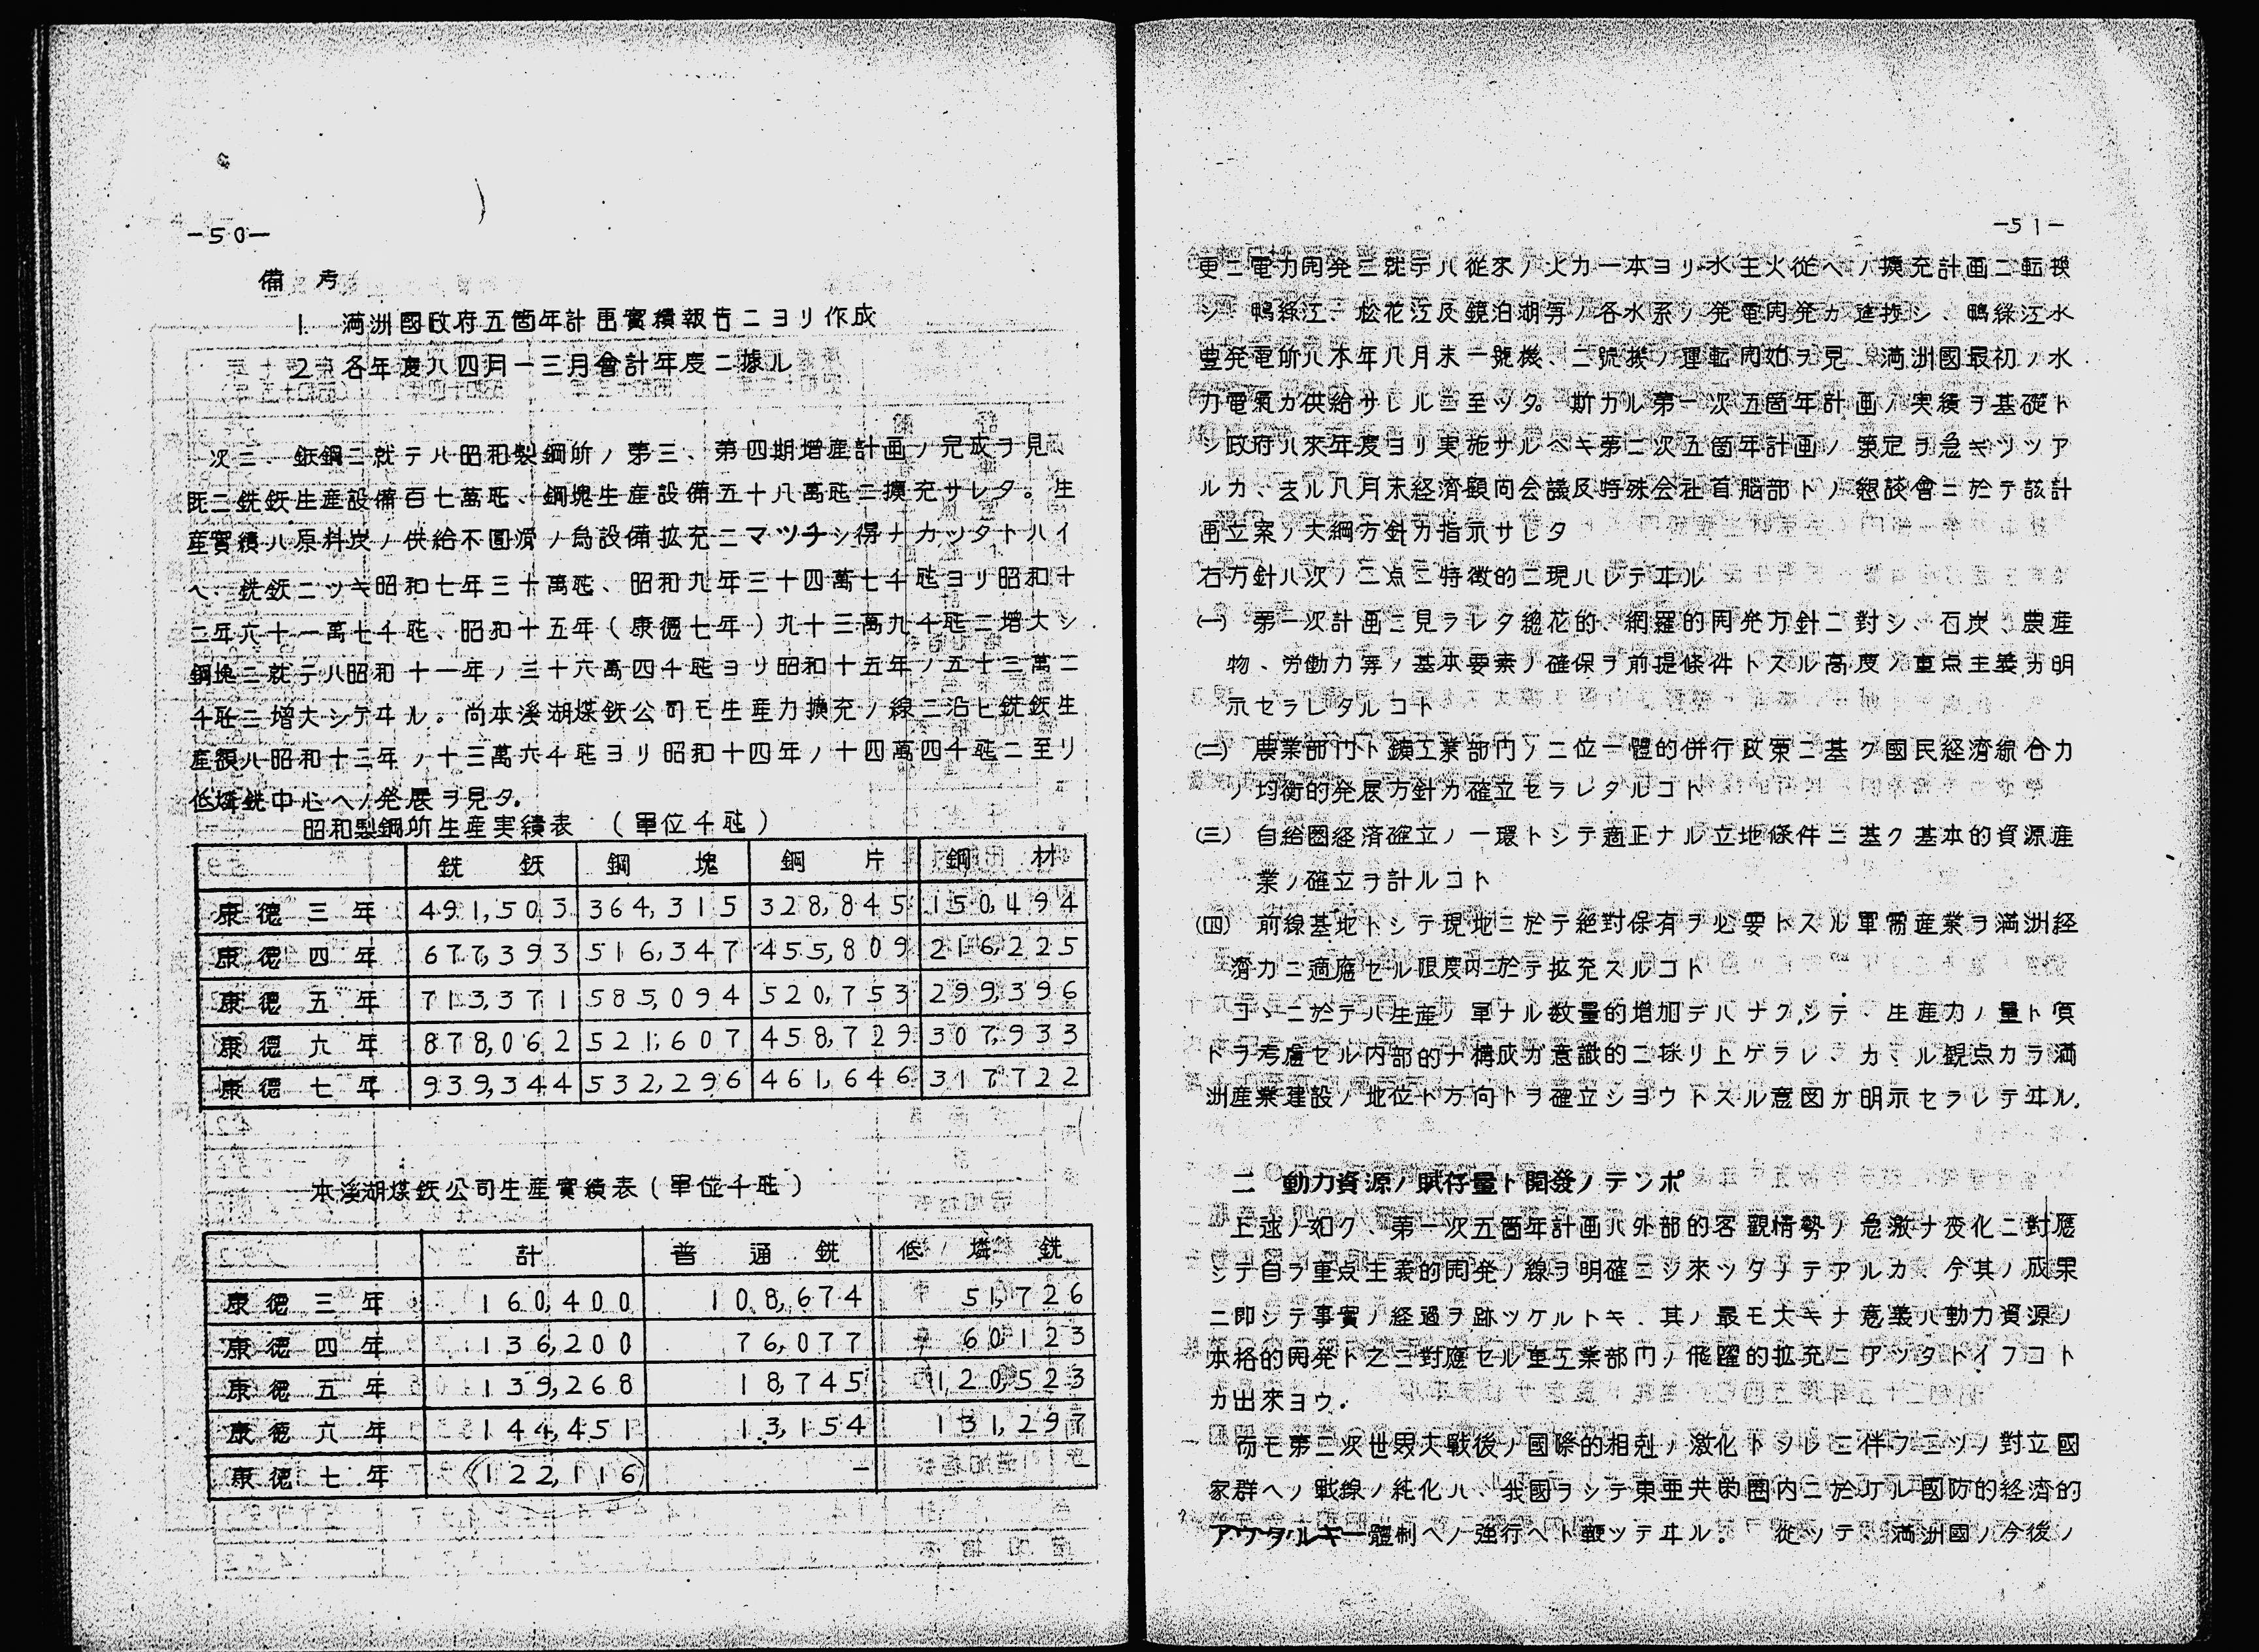 —50—
備考
1 満洲國政府五箇年計画實績報告ニヨリ作成
2 各年度八四月一三月會計年度ニ據ル
次ニ、鉄鋼ニ就テハ昭和製鋼所ノ第三、第四期増産計画ノ完成ヲ見
既ニ銑鉄生産設備百七萬瓲、鋼塊生産設備五十八萬瓲ニ擴充サレタ。生
産實績ハ原料炭ノ供給不圓滑ノ為設備拡充ニマツチシ得ナカッタトハイ
ヘ、銑鉄ニツキ昭和七年三十萬瓲、昭和九年三十四萬七千瓲ヨリ昭和十
二年六十一萬七千瓲、昭和十五年(康德七年)九十三萬九千瓲ニ増大シ
鋼塊ニ就テハ昭和十一年ノ三十六萬四千瓲ヨリ昭和十五年ノ五十三萬二
千瓲ニ増大シテヰル。尚本溪湖煤鉄公司モ生産力擴充ノ線ニ沿ヒ銑鉄生
産額ハ昭和十二年ノ十三萬六千瓲ヨリ昭和十四年ノ十四萬四千瓲ニ至リ
低燐銑中心ヘノ発展ヲ見タ.
昭和製鋼所生産実績表 (單位千瓲)
銑鉄 鋼塊 鋼片 鋼材
康德三年 491,503 364,315 328,845 150,494
康德四年 677,393 516,347 455,809 216,225
康德五年 713,371 585,094 520,753 299,396
康德六年 878,062 521,607 458,729 307,933
康德七年 939,344 532,296 461,646 317,722
本溪湖煤鉄公司生産實績表(單位千瓲)
計 普通銑 低燐銑
康德三年 160,400 108,674 51,726
康德四年 136,200 76,077 60,123
康德五年 139,268 18,745 120,523
康德六年 144,451 13,154 131,297
康德七年 (122,116) — —
—51—
更ニ電力開発ニ就テハ従来ノ火力一本ヨリ水主火従ヘノ擴充計画ニ転換
シ、鴨緑江、松花江及鏡泊湖等ノ各水系ノ発電開発カ進捗シ、鴨緑江水
豊発電所ハ本年八月末一號機、二號機ノ運転開始ヲ見、満洲國最初ノ水
力電氣カ供給サレルニ至ツタ。斯カル第一次五箇年計画ノ実績ヲ基礎ト
シ政府ハ來年度ヨリ実施サルヘキ第二次五箇年計画ノ策定ヲ急キツツア
ルカ、去ル八月末経済顧問会議及特殊会社首脳部トノ懇談會ニ於テ該計
画立案ノ大綱方針カ指示サレタ
右方針ハ次ノ二点ニ特徴的ニ現ハレテヰル
(一) 第一次計画ニ見ラレタ總花的、網羅的開発方針ニ對シ、石炭、農産
物、労働力等ノ基本要素ノ確保ヲ前提條件トスル高度ノ重点主義カ明
示セラレタルコト
(二) 農業部門ト鑛工業部門ノ二位一體的併行政策ニ基ク國民経済綜合力
ノ均衡的発展方針カ確立セラレタルコト
(三) 自給圏経済確立ノ一環トシテ適正ナル立地條件ニ基ク基本的資源産
業ノ確立ヲ計ルコト
(四) 前線基地トシテ現地ニ於テ絶對保有ヲ必要トスル軍需産業ヲ満洲経
濟力ニ適應セル限度内ニ於テ拡充スルコト
コヽニ於テハ生産ノ單ナル数量的増加デハナクシテ、生産力ノ量ト質
トヲ考慮セル内部的ナ構成ガ意識的ニ採リ上ゲラレ、カヽル観点カラ満
洲産業建設ノ地位ト方向トヲ確立シヨウトスル意図カ明示セラレテヰル.
二 動力資源ノ賦存量ト開發ノテンポ
上述ノ如ク、第一次五箇年計画ハ外部的客観情勢ノ急激ナ変化ニ對應
シテ自ラ重点主義的開発ノ線ヲ明確ニシ來ツタナテアルカ、今其ノ成果
ニ即シテ事實ノ経過ヲ跡ツケルトキ、其ノ最モ大キナ意義ハ動力資源ノ
本格的開発ト之ニ對應セル重工業部門ノ飛躍的拡充ニアツタトイフコト
カ出來ヨウ.
而モ第二次世界大戰後ノ國際的相剋ノ激化トソレニ伴フ二ツノ對立國
家群ヘノ戰線ノ純化ハ、我國ヲシテ東亜共栄圏内ニ於ケル國防的経済的
アウタルキー體制ヘノ強行ヘト鞭ツテヰル. 從ツテ、満洲國ノ今後ノ